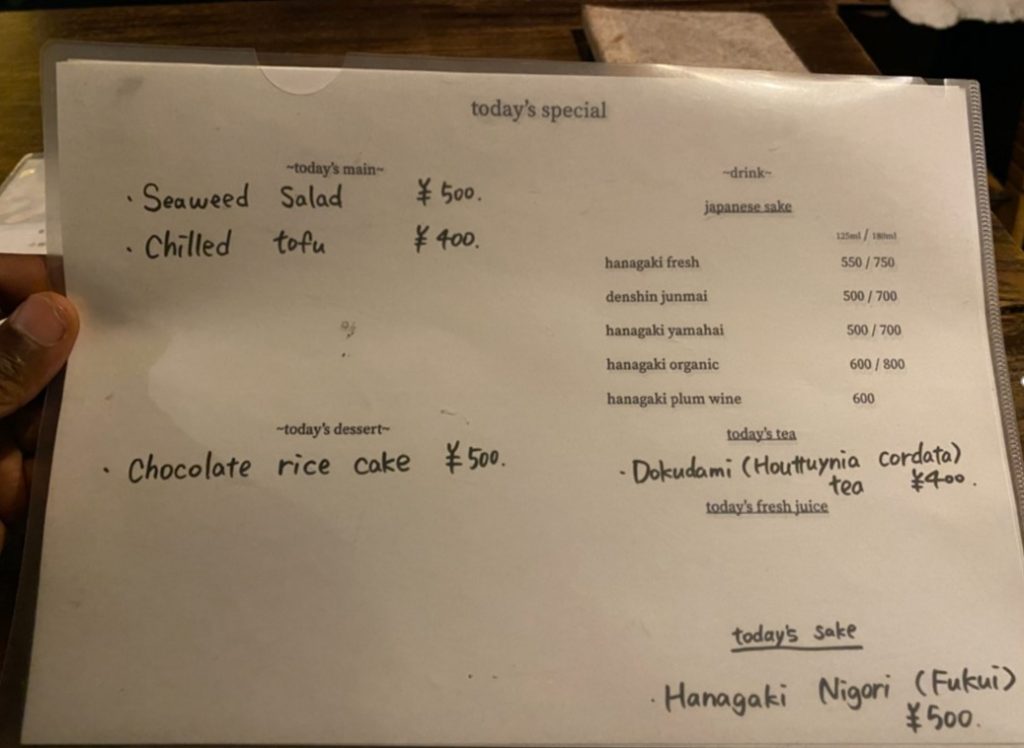 today's special
~today's main~
· Seaweed Salad ¥500.
· Chilled tofu ¥400.
~today's dessert~
· Chocolate rice cake ¥500.
~drink~
japanese sake
125ml / 180ml
hanagaki fresh 550 / 750
denshin junmai 500 / 700
hanagaki yamahai 500 / 700
hanagaki organic 600 / 800
hanagaki plum wine 600
today's tea
· Dokudami (Houttuynia cordata)
tea ¥400.
today's fresh juice
today's sake
· Hanagaki Nigori (Fukui)
¥500.